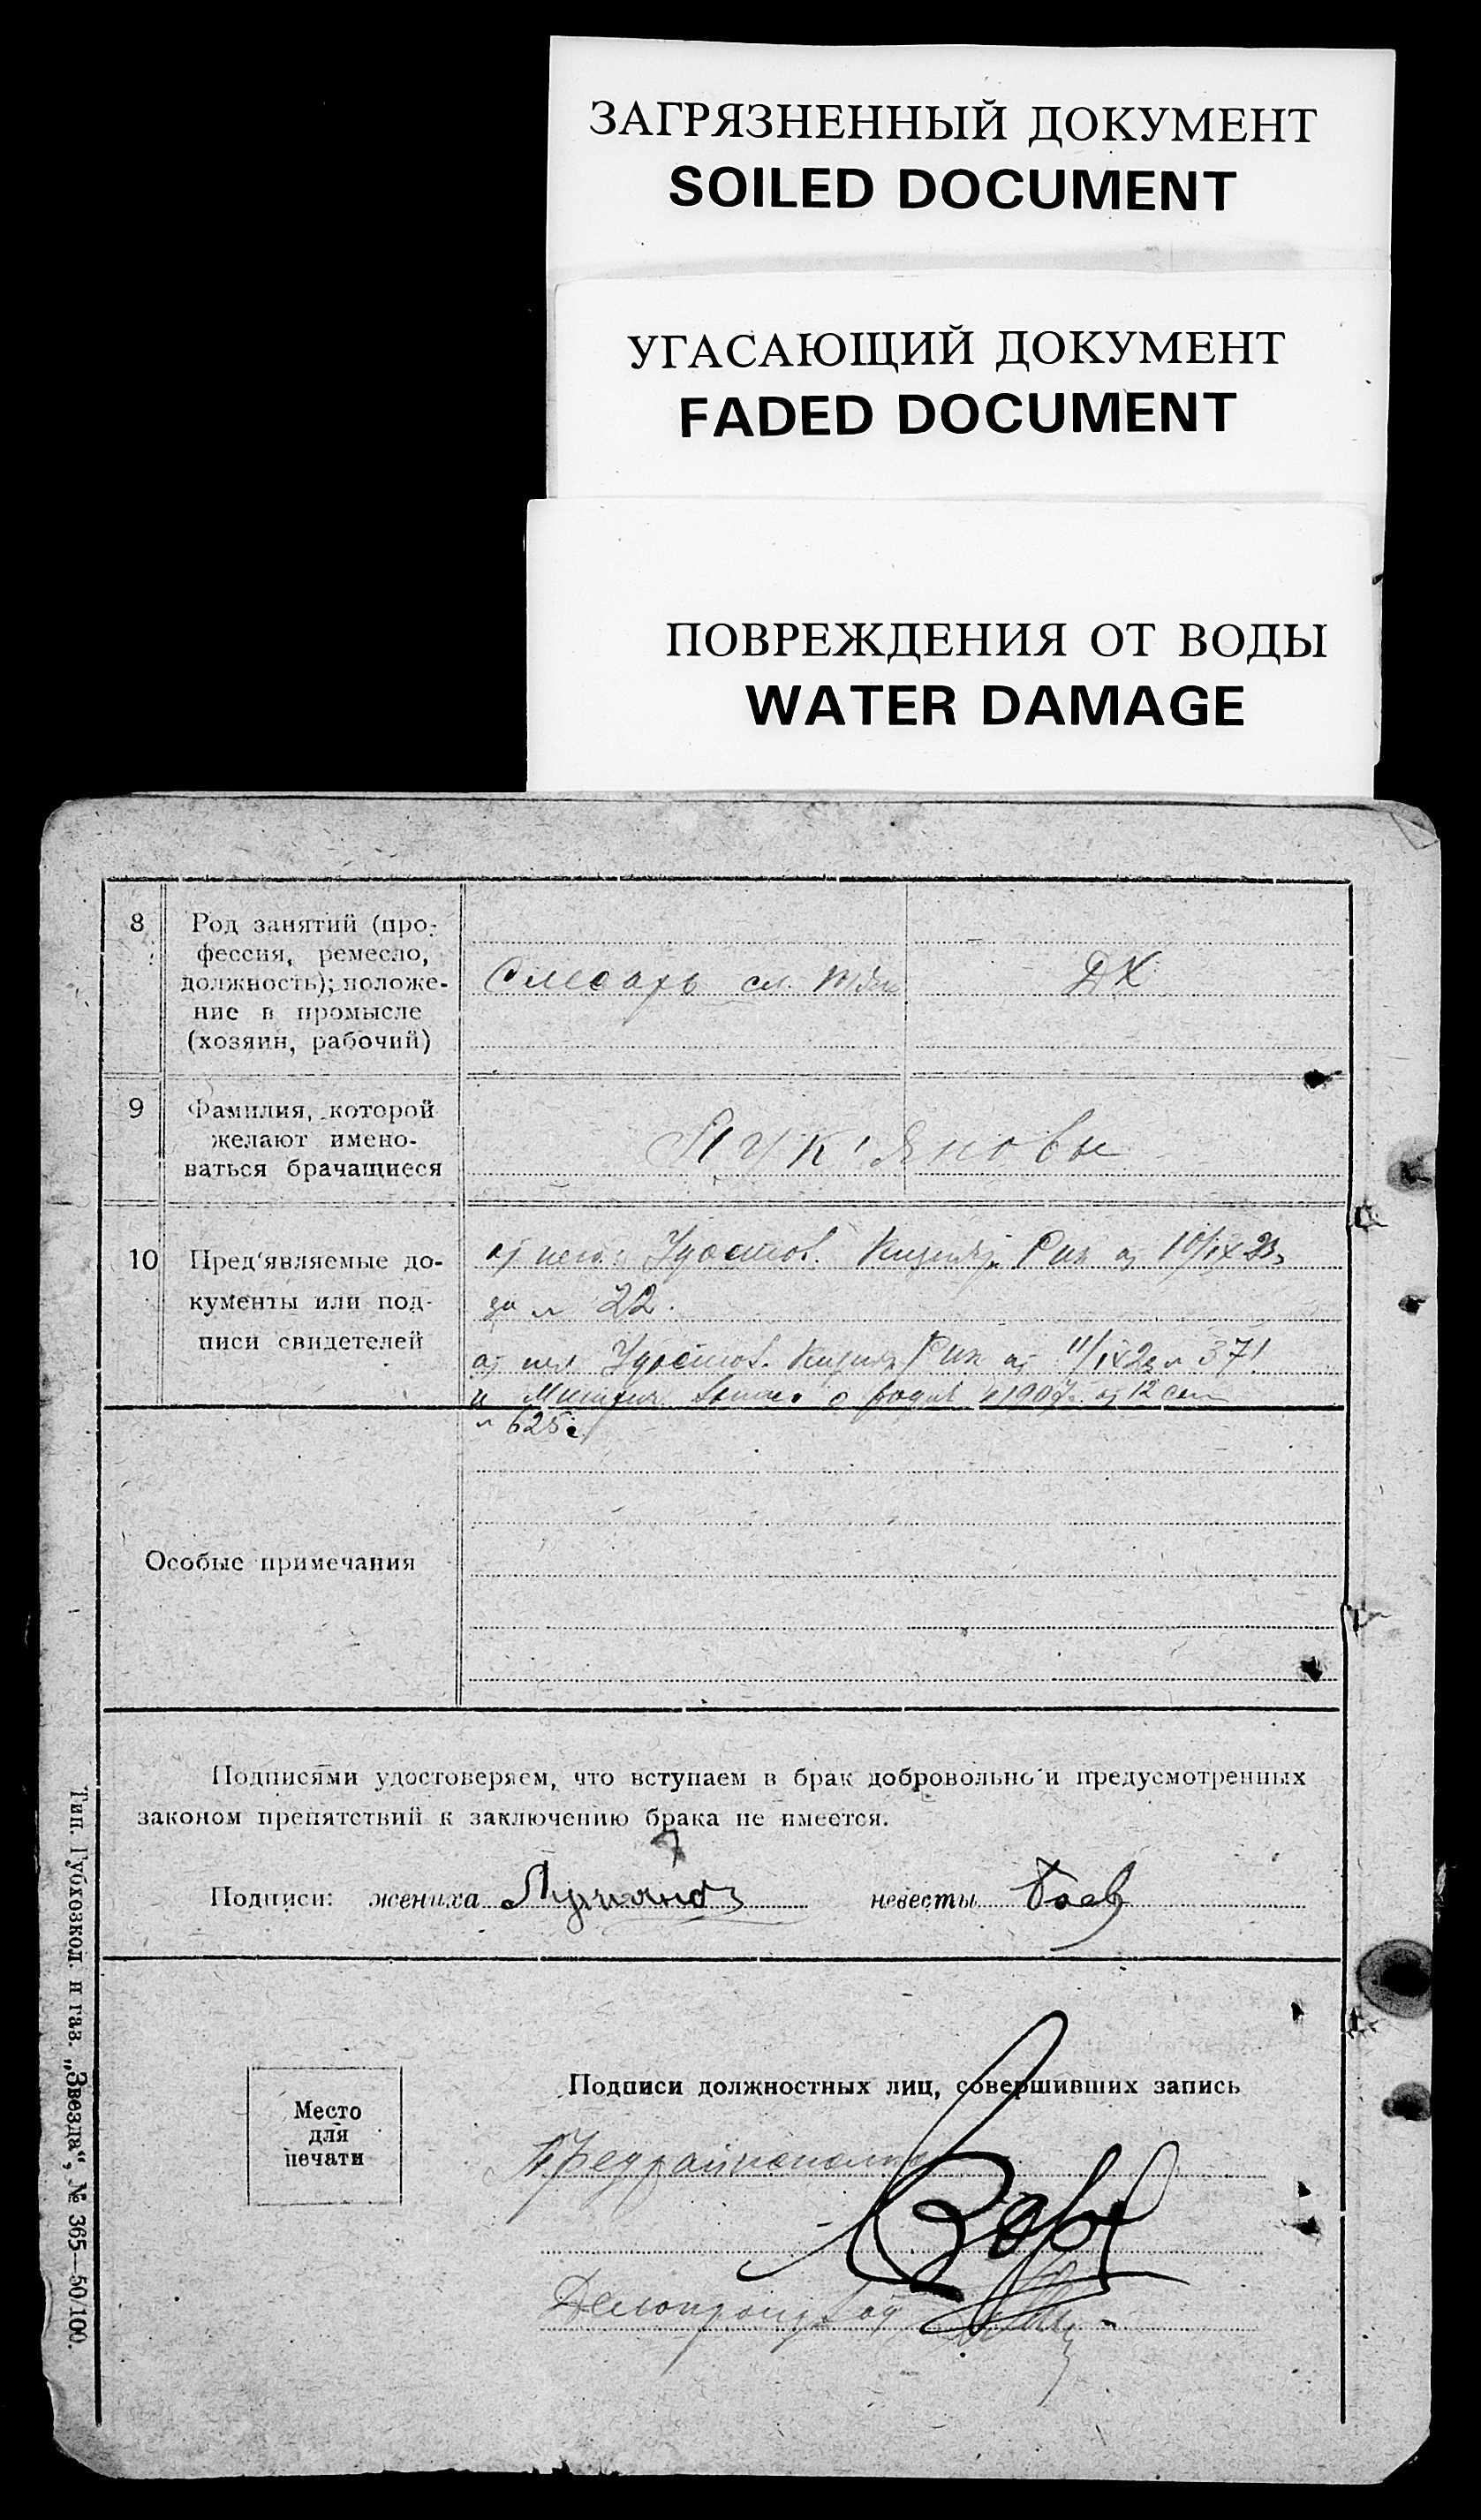 ЗАГРЯЗНЕННЫЙ ДОКУМЕНТ
SOILED DOCUMENT
УГАСАЮЩИЙ ДОКУМЕНТ
FADED DOCUMENT
ПОВРЕЖДЕНИЯ ОТ ВОДЫ
WATER DAMAGE
8
Род занятий (про-
фессия, ремесло,
должность); положе-
ние в промысле
(хозяин, рабочий)
Слесарь сл.
ДХ
9
Фамилия, которой
желают имено-
ваться брачащиеся
Лук'яновы
10
Пред'являемые до-
кументы или под-
писи свидетелей
Удостов. Рик 10/IX 23
за № 22.
Удостов. Рик 11/IX 23 № 371
и о 1907 12 сен
№ 625
Особые примечания
Подписями удостоверяем, что вступаем в брак добровольно и предусмотренных
законом препятствий к заключению брака не имеется.
Подписи: жениха Лукянов невесты
Место
для
печати
Подписи должностных лиц, совершивших запись
Делопроизвод
Тип. Губхозкол. и газ. „Звезда", № 365—50/100.